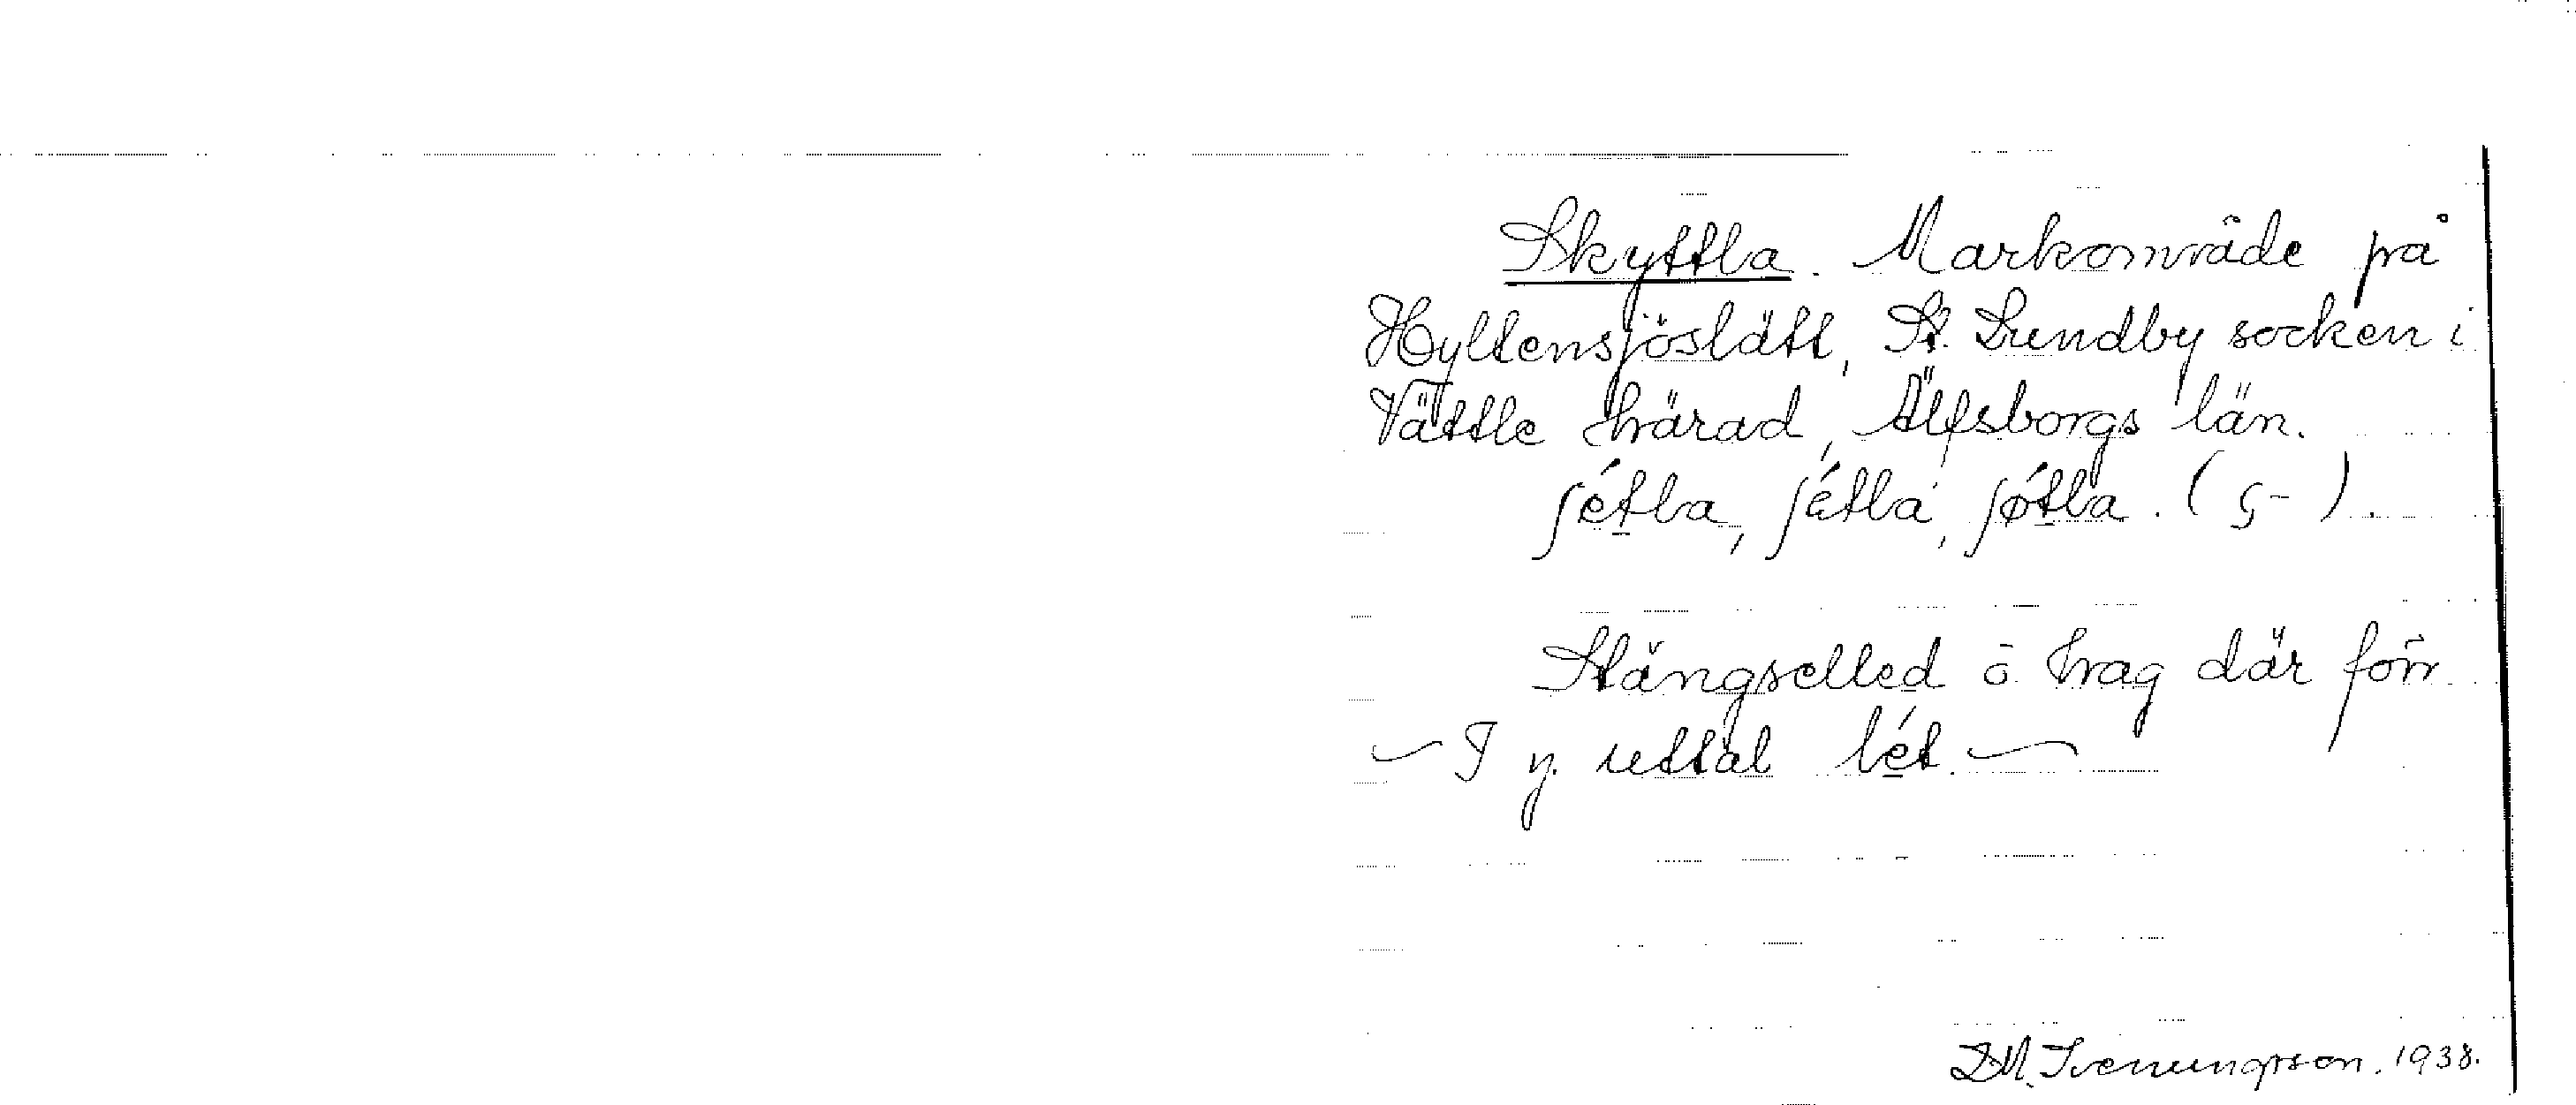 Skyttla. Markområde på
Hyltensjöslätt, St. Lundby socken i
Vättle härad, Älfsborgs län.
ʃétla, ʃétla, ʃøtla. (ç-).
Stängselled ö hag där förr
I y. uttal lét.
D.M. Svenungsson. 1938.